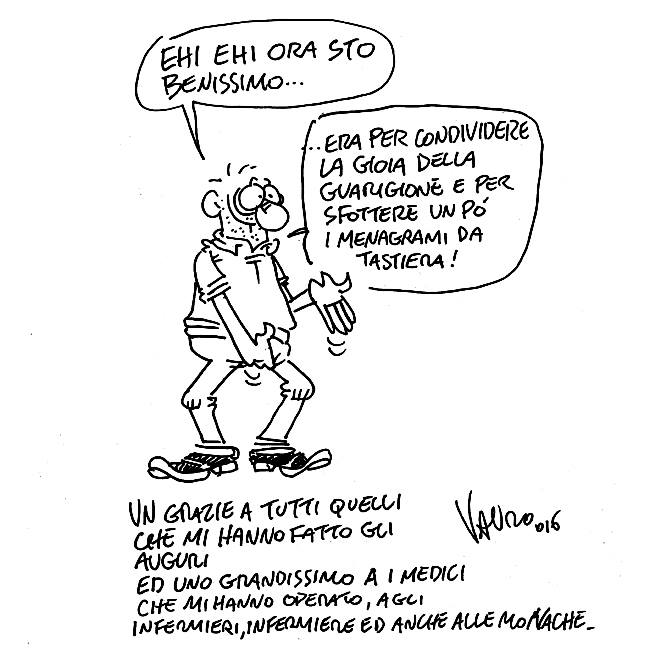 EHI EHI ORA STO
BENISSIMO...
...ERA PER CONDIVIDERE
LA GIOIA DELLA
GUARIGIONE E PER
SFOTTERE UN PÒ
I MENAGRAMI DA
TASTIERA!
UN GRAZIE A TUTTI QUELLI
CHE MI HANNO FATTO GLI
AUGURI
ED UNO GRANDISSIMO A I MEDICI
CHE MI HANNO OPERATO, AGLI
INFERMIERI, INFERMIERE ED ANCHE ALLE MONACHE_
VAURO 016